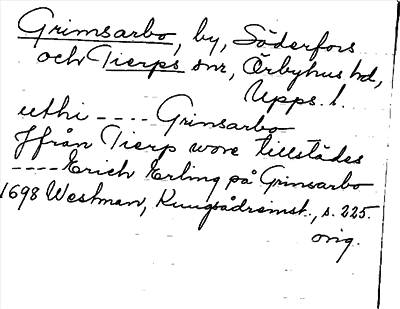 Grimsarbo, by, Söderfors
och Tierps snr, Örbyhus hd,
Upps. l.
uthi ---- Grinsarbo
Ifrån Tierp wore tillstädes
---- Erich Erling på Grinsarbo
1698 Westman, Kungsådremst., s. 225.
orig.